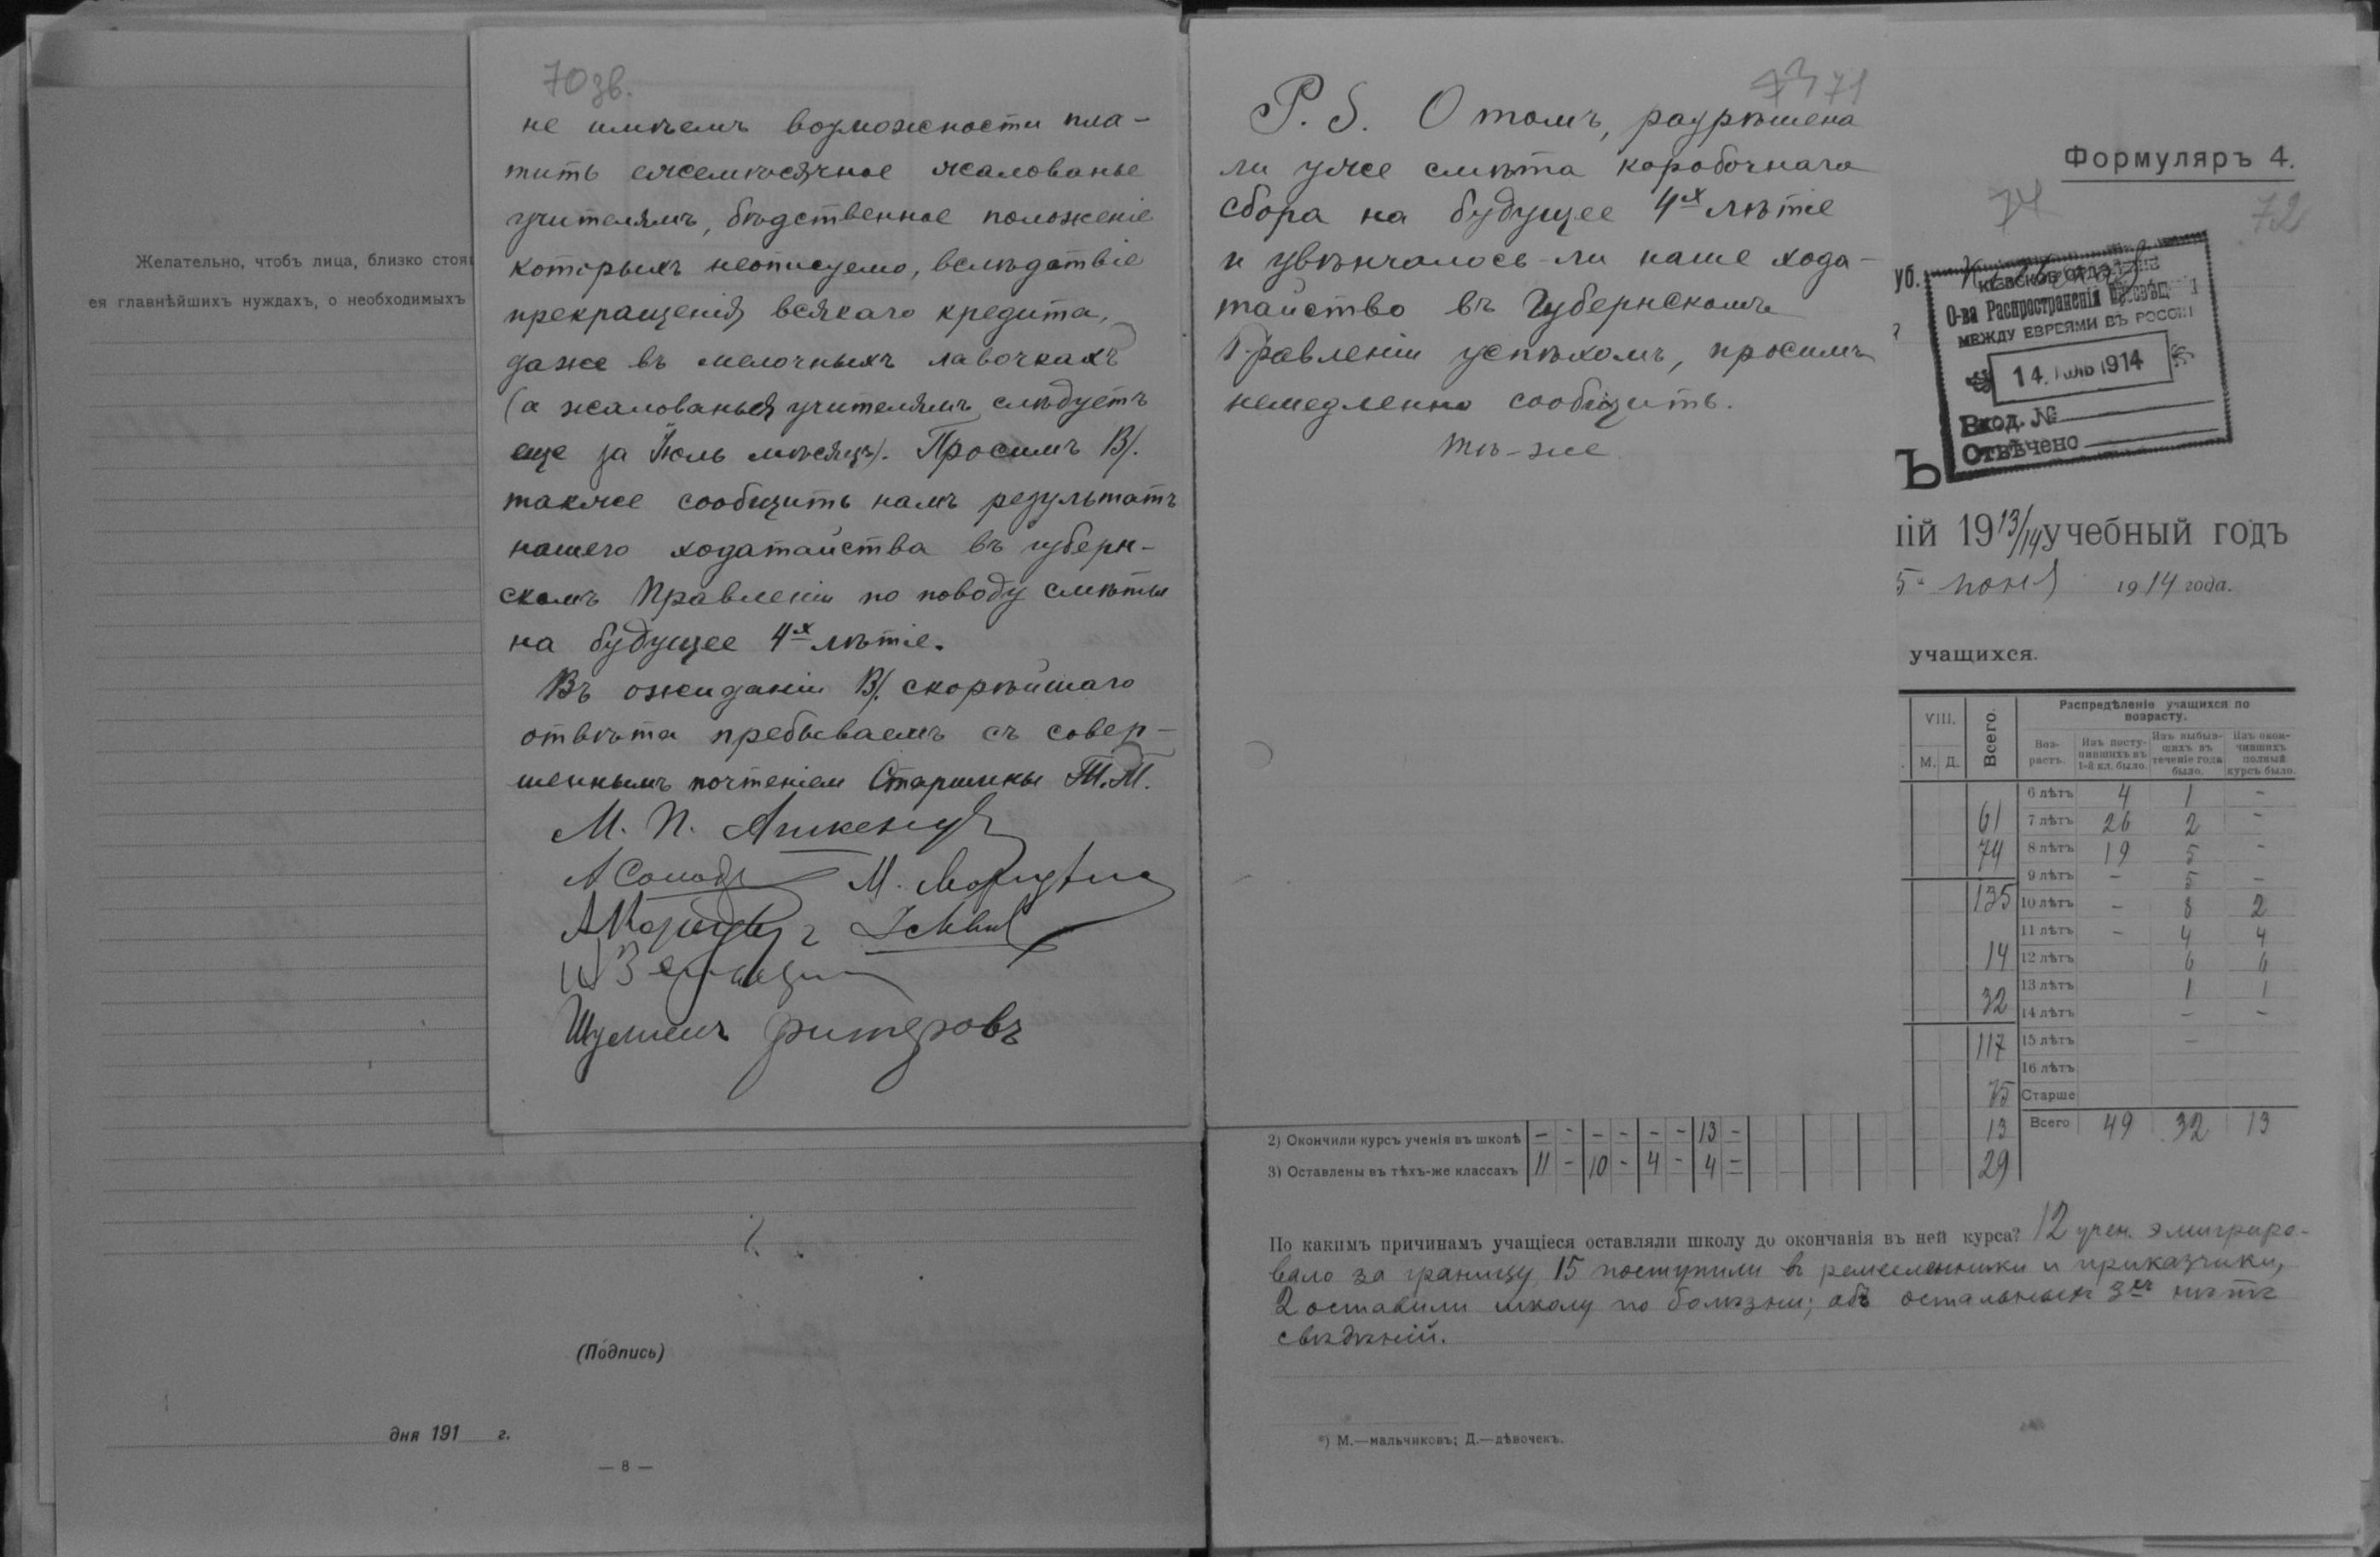 70 зв.
не имѣемъ возможности пла-
тить ежемѣсячное жалованье
учителямъ, бѣдственное положеніе
которыхъ неописуемо, вслѣдствіе
прекращенія всякаго кредита,
даже въ мелочныхъ лавочкахъ
(а жалованья учителямъ слѣдуетъ
еще за Іюль мѣсяцъ). Просимъ В/.
также сообщить намъ результатъ
нашего ходатайства въ губерн-
скомъ Правленіи по поводу смѣты
на будущее 4х лѣтіе.
Въ ожиданіи В/. скорѣйшаго
отвѣта пребываемъ съ совер-
шеннымъ почтеніем Старшины Т.Т.
М. П.
М.
Шулимъ Ритеровъ
Желательно, чтобъ лица, близко стоя
ея главнѣйшихъ нуждахъ, о необходимыхъ
(Подпись)
дня 191 г.
— 8 —
71
P. S. О томъ, разрѣшена
ли уже смѣта коробочнаго
сбора на будущее 4х лѣтіе
и увѣнчалось-ли наше хода-
тайство въ Губернскомъ
Правленіи успѣхомъ, просимъ
немедленно сообщить.
Тѣ-же
Формуляръ 4.
74
72
уб.
КІЕВСКОЕ ОТДѢЛЕНІЕ
О-ва Распространенія Просвѣщ
МЕЖДУ ЕВРЕЯМИ ВЪ РОССІИ
14. ІЮЛЬ 1914
Вход. №
Отвѣчено
Ъ
ій 1913/14 учебный годъ
5 1914 года.
учащихся.
VIII. Всего. Распредѣленіе учащихся по возрасту.
М. Д. Воз-растъ. Изъ посту-пившихъ въ 1-й кл. было. Изъ выбыв-шихъ въ теченіе года было. Изъ окон-чившихъ полный курсъ было.
6 лѣтъ 4 1 -
61 7 лѣтъ 26 2 -
74 8 лѣтъ 19 5 -
9 лѣтъ - 5 -
135 10 лѣтъ - 8 2
11 лѣтъ - 4 4
14 12 лѣтъ 6 6
13 лѣтъ 1 1
32 14 лѣтъ - -
117 15 лѣтъ -
16 лѣтъ
75 Старше
13 Всего 49 32 13
29
2) Окончили курсъ ученія въ школѣ - - - - - - 13 -
3) Оставлены въ тѣхъ-же классахъ 11 - 10 - 4 - 4 -
По какимъ причинамъ учащіеся оставляли школу до окончанія въ ней курса? 12 учен. эмигриро-
вало за границу, 15 поступили в ремесленники и приказчики,
2 оставили школу по болѣзни; объ остальныхъ 3хъ нѣтъ
свѣдѣній.
*) М.—мальчиковъ; Д.—дѣвочекъ.